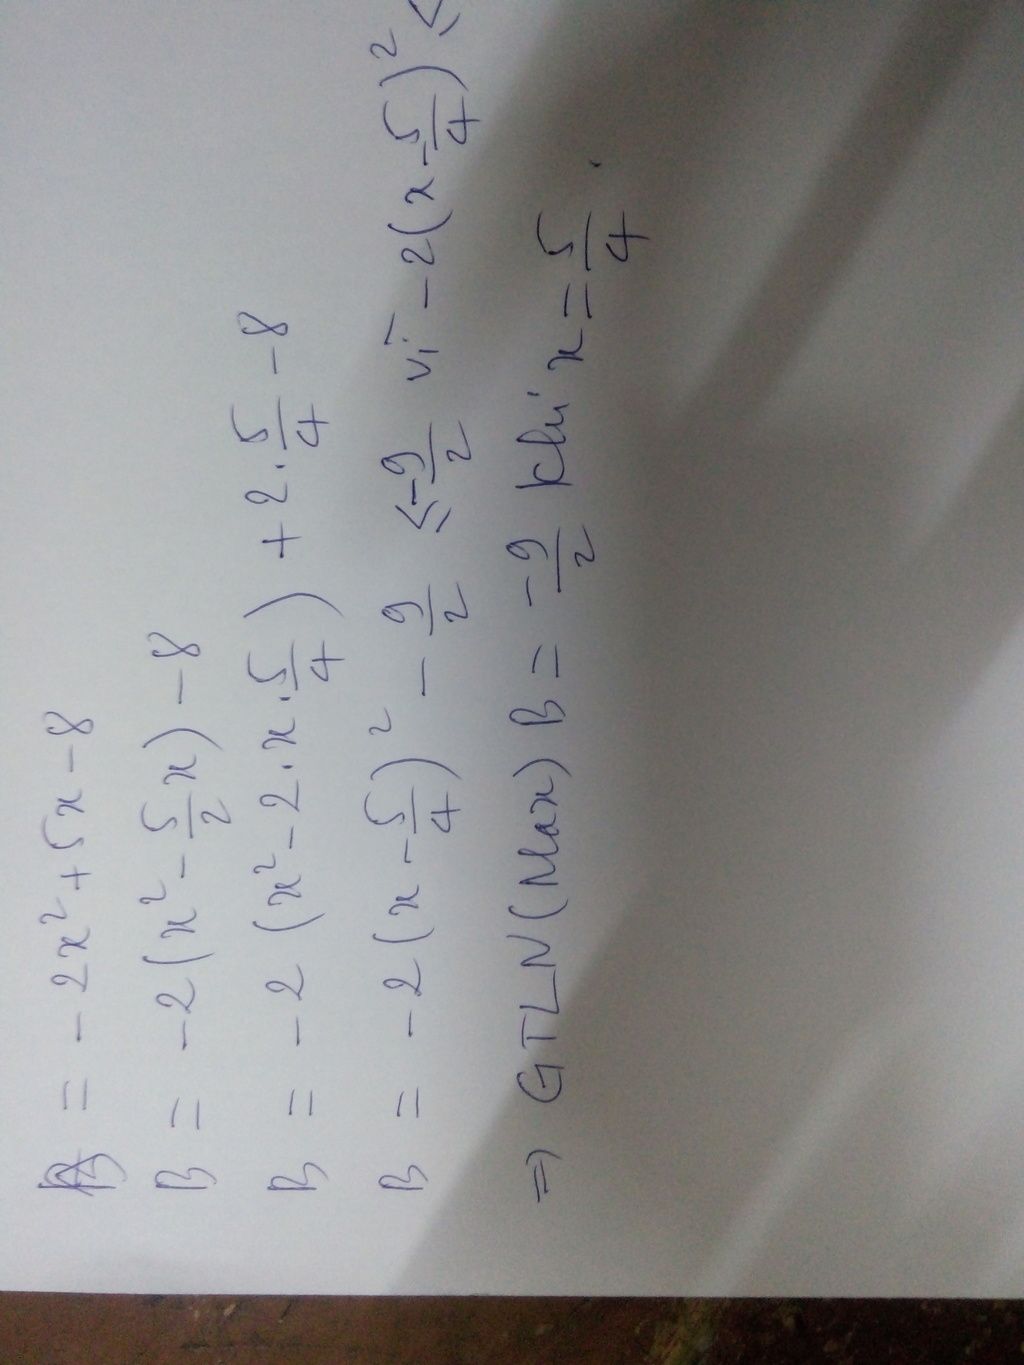 B = -2x² + 5x - 8
B = -2(x² - 5/2 x) - 8
B = -2 (x² - 2.x.5/4) + 2.5/4 - 8
B = -2(x - 5/4)² - 9/2 ≤ -9/2 vì -2(x - 5/4)² ≤
=> GTLN(Max) B = -9/2 khi x = 5/4.